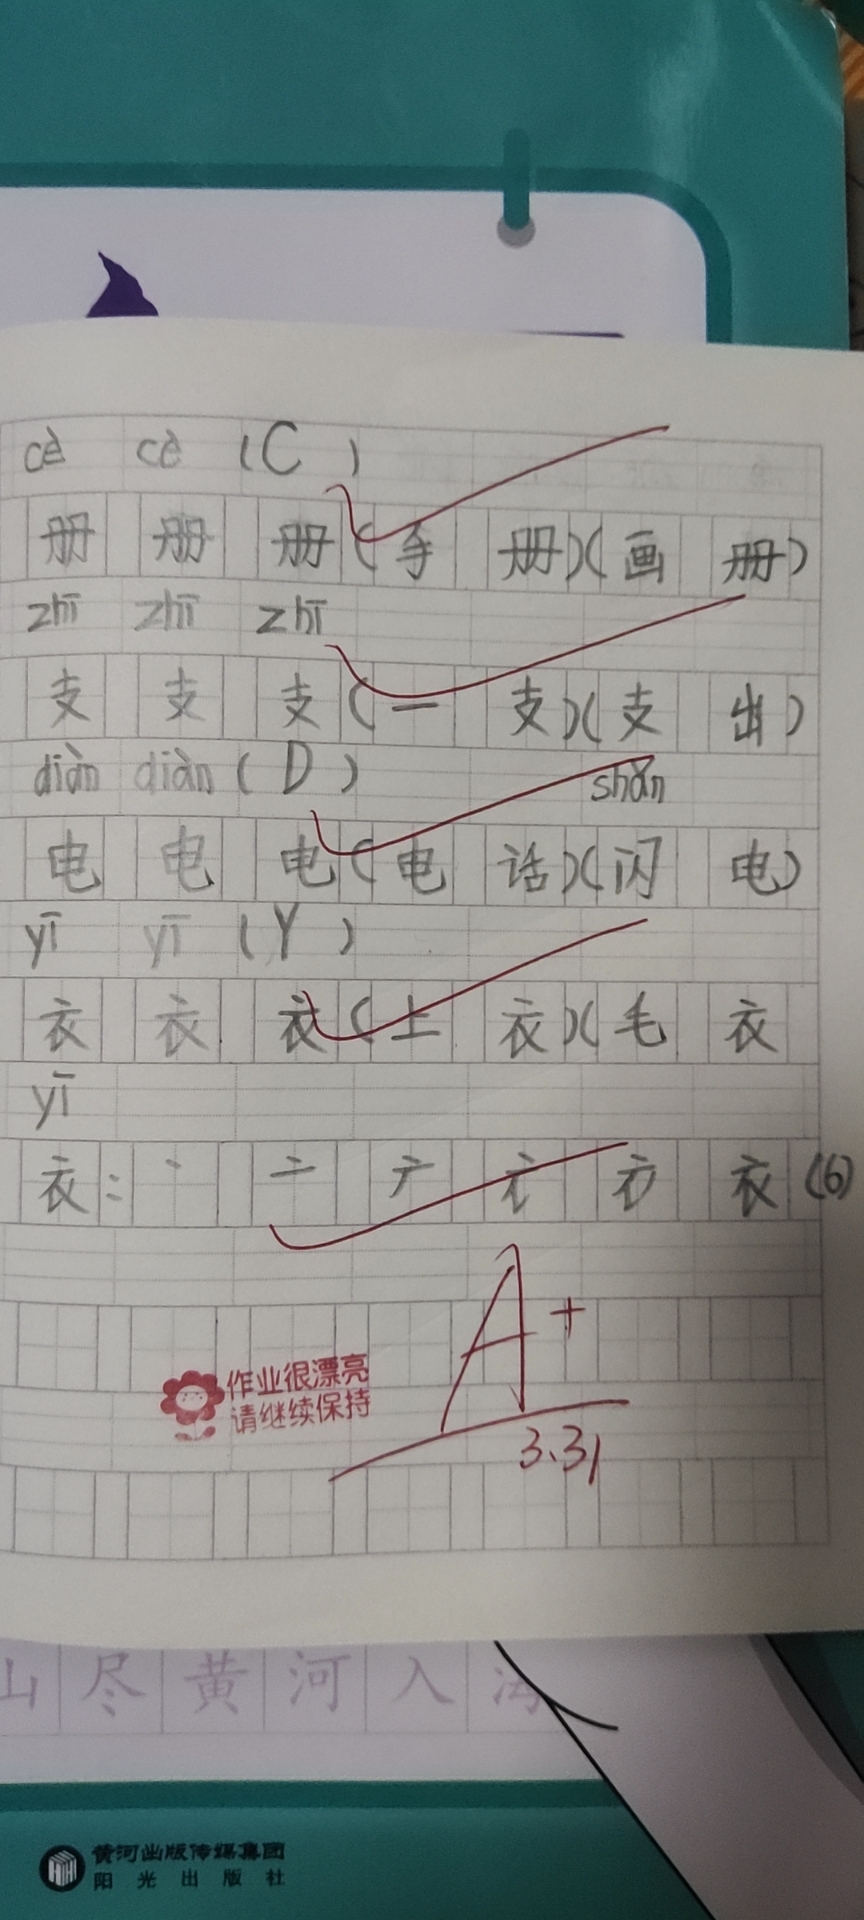 cè cè (C)
册 册 册(手 册)(画 册)
zhī zhī zhī
支 支 支(一 支)(支 出)
diàn diàn (D)
shǎn
电 电 电(电 话)(闪 电)
yī yī (Y)
衣 衣 衣(上 衣)(毛 衣
yī
衣: 丶 亠 衣 (6)
A+
作业很漂亮
请继续保持
3.31
山 尽 黄 河 入
黄河出版传媒集团
阳光出版社